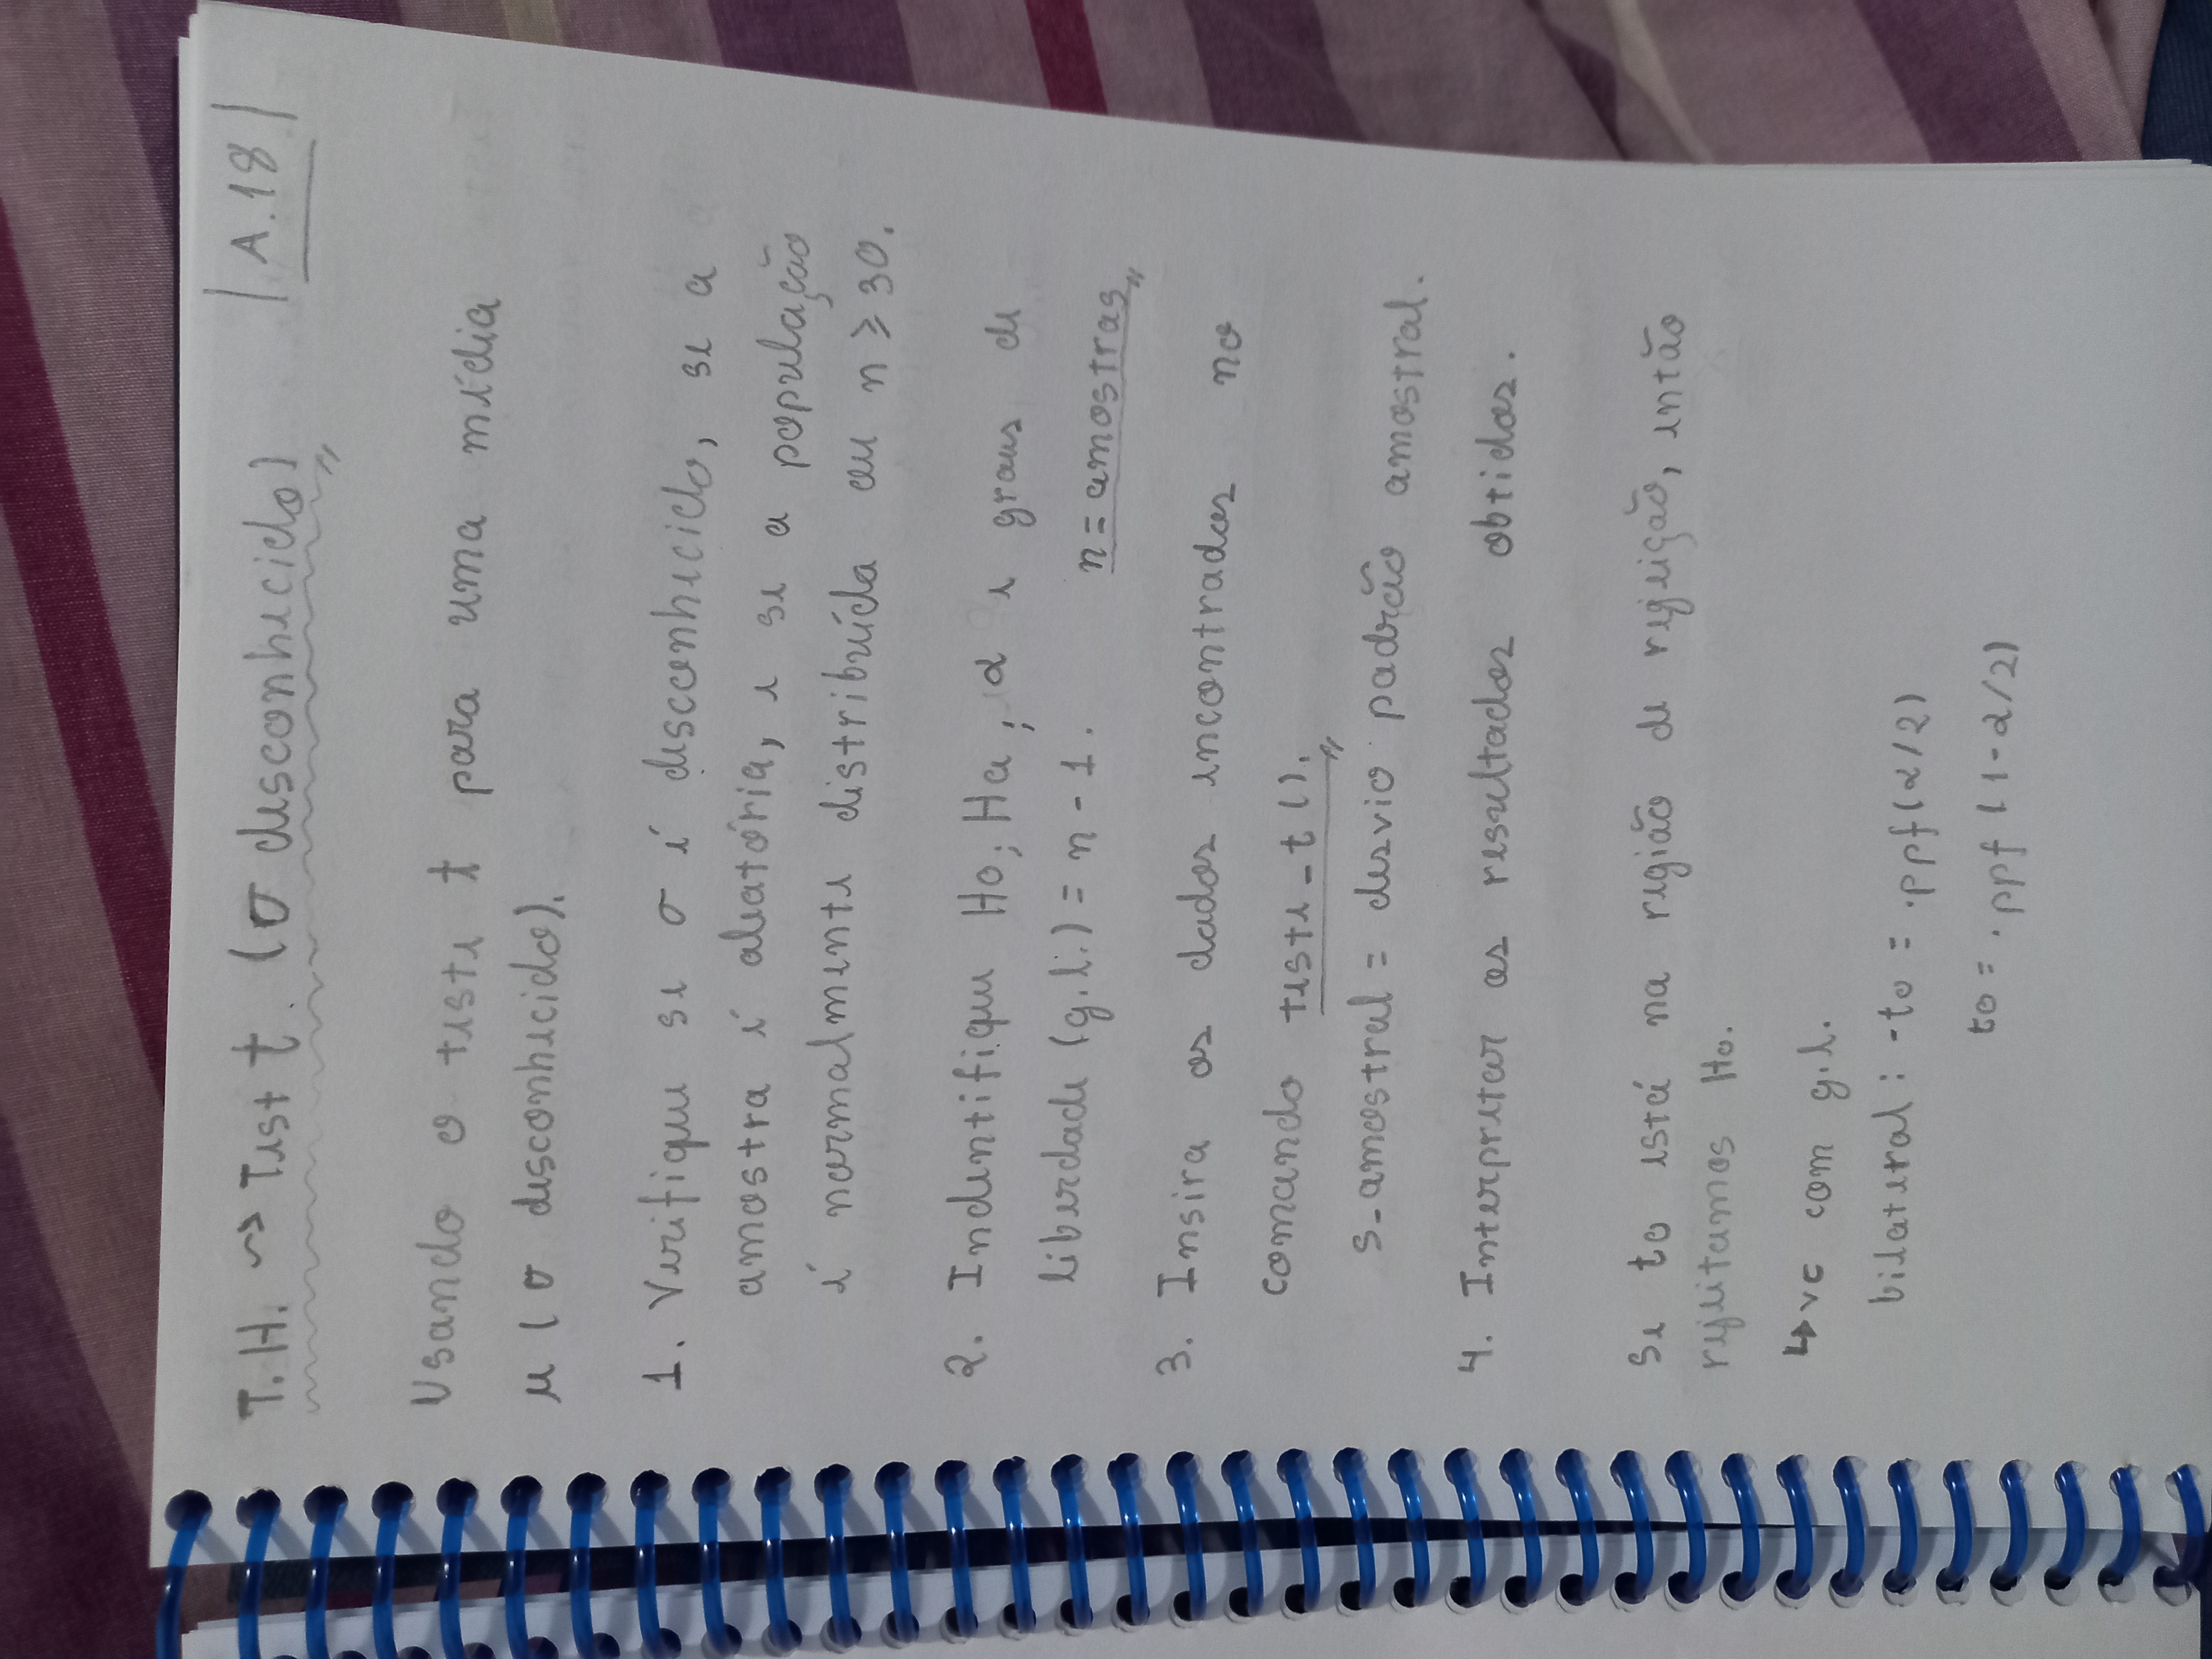 T.H. ⇝ Test t. (σ desconhecido) |A.18|
Usando o teste t para uma média
μ (σ desconhecido).
1. Verifique se σ é desconhecido, se a
amostra é aleatória, e se a população
é normalmente distribuída ou n ≥ 30.
2. Indentifique H0; Ha; α e graus de
liberdade (g.l.) = n - 1. n = amostras
3. Insira os dados encontrados no
comando teste_t().
s_amostral = desvio padrão amostral.
4. Interpretar os resultados obtidos.
Se t0 está na região de rejeição, então
rejeitamos H0.
↳ vc com g.l.
bilateral: -t0 = .ppf(α/2)
t0 = .ppf (1-α/2)